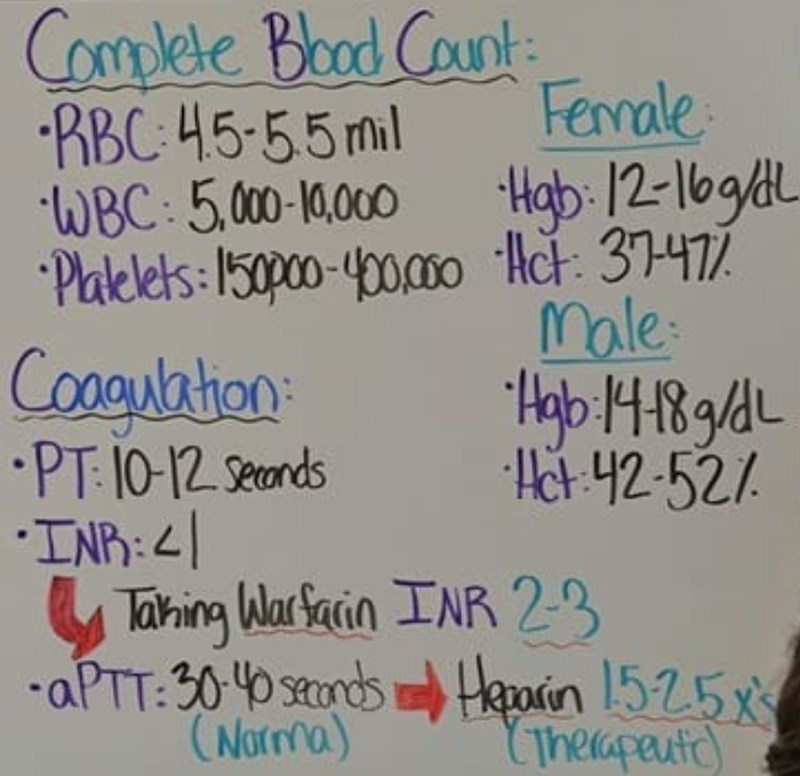 Complete Blood Count:
•RBC: 4.5-5.5 mil
•WBC: 5,000-10,000
•Platelets: 150,000-400,000
Female:
•Hgb: 12-16 g/dL
•Hct: 37-47%
Male:
•Hgb: 14-18 g/dL
•Hct: 42-52%
Coagulation:
•PT: 10-12 seconds
•INR: <1
Taking Warfarin INR 2-3
•aPTT: 30-40 seconds → Heparin 1.5-2.5 x's
(Norma) (Therapeutc)